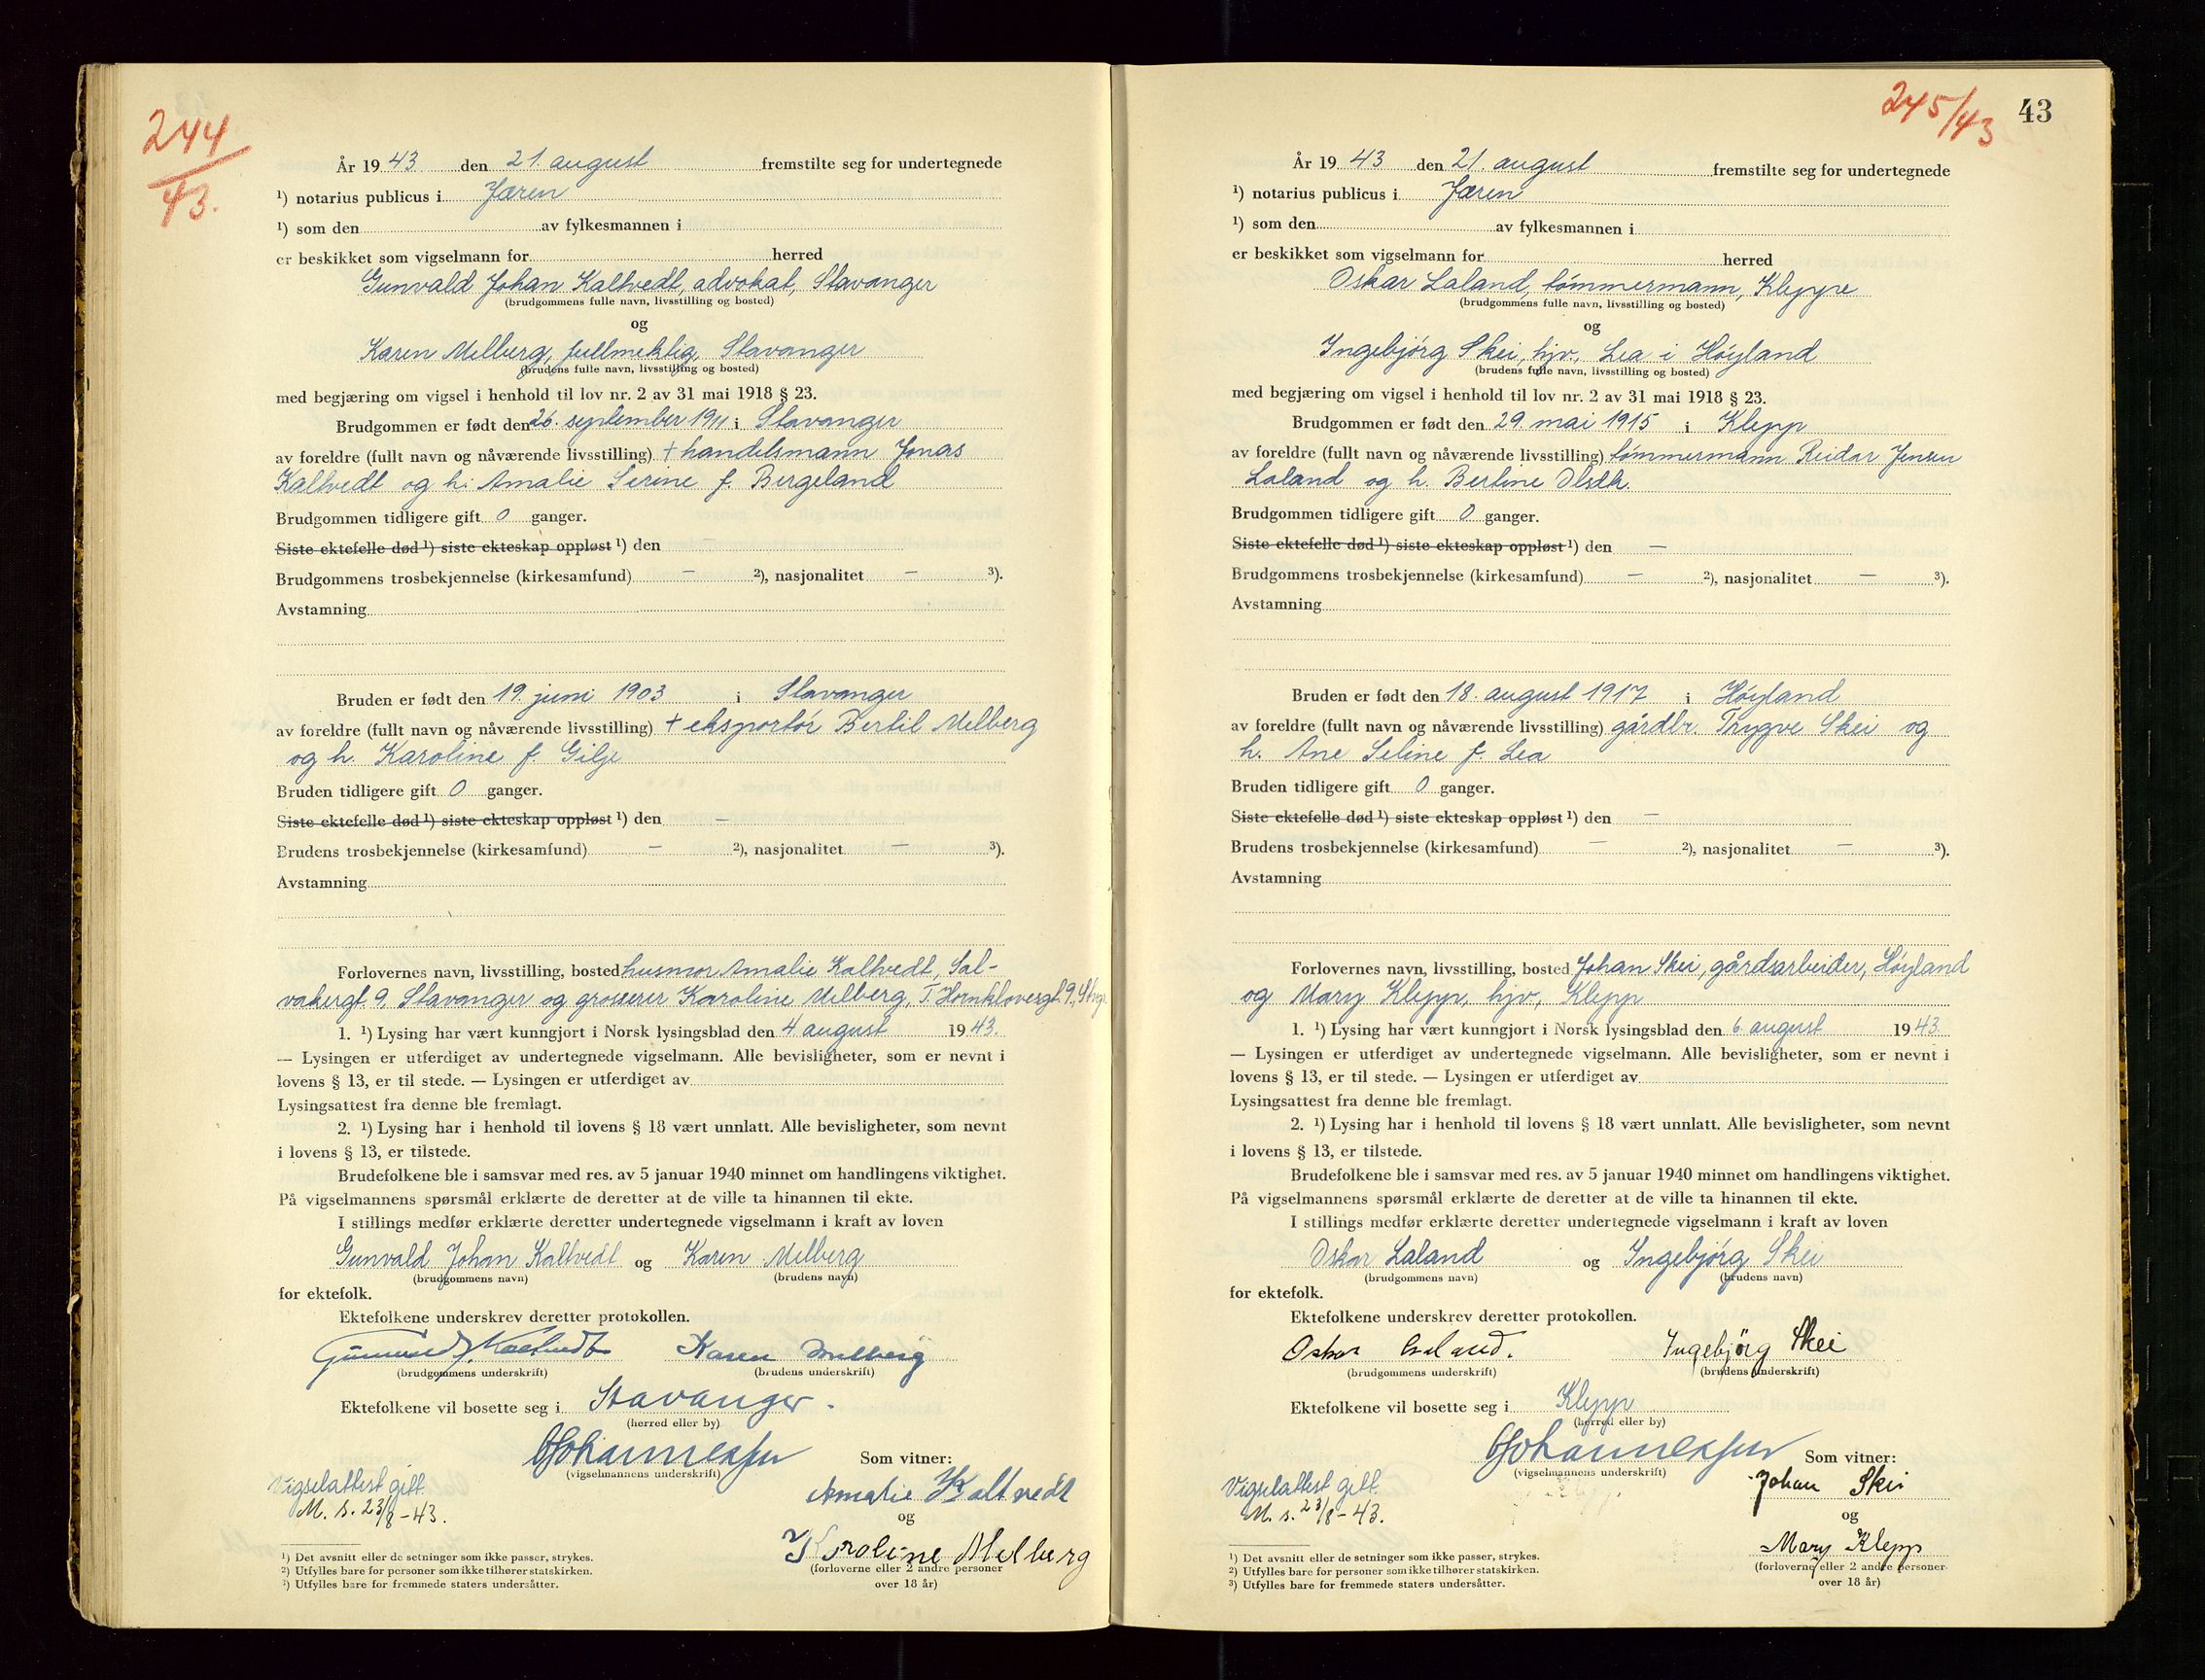 244
43.
År 1943 den 21. august fremstilte seg for undertegnede
¹) notarius publicus i Jæren
¹) som den av fylkesmannen i
er beskikket som vigselmann for herred
Gunvald Johan Kaltvedt, advokat, Stavanger
(brudgommens fulle navn, livsstilling og bosted)
og
Karen Melberg, fullmektig, Stavanger
(brudens fulle navn, livsstilling og bosted)
med begjæring om vigsel i henhold til lov nr. 2 av 31 mai 1918 § 23.
Brudgommen er født den 26. september 1911 i Stavanger
av foreldre (fullt navn og nåværende livsstilling) + handelsmann Jonas
Kaltvedt og h. Amalie Serine f. Bergeland
Brudgommen tidligere gift 0 ganger.
Siste ektefelle død ¹) siste ekteskap oppløst ¹) den –
Brudgommens trosbekjennelse (kirkesamfund) – ²), nasjonalitet – ³).
Avstamning
Bruden er født den 19. juni 1903 i Stavanger
av foreldre (fullt navn og nåværende livsstilling) + eksportør Bertil Melberg
og h. Karoline f. Gilje
Bruden tidligere gift 0 ganger.
Siste ektefelle død ¹) siste ekteskap oppløst ¹) den –
Brudens trosbekjennelse (kirkesamfund) – ²), nasjonalitet – ³).
Avstamning
Forlovernes navn, livsstilling, bosted husmor Amalie Kaltvedt, Sal-
vakergt. 9, Stavanger og grosserer Karoline Melberg, T. Hornklovergt. 9, Stvgr.
1. ¹) Lysing har vært kunngjort i Norsk lysingsblad den 4 august 1943.
— Lysingen er utferdiget av undertegnede vigselmann. Alle bevisligheter, som er nevnt i
lovens § 13, er til stede. — Lysingen er utferdiget av
Lysingsattest fra denne ble fremlagt.
2. ¹) Lysing har i henhold til lovens § 18 vært unnlatt. Alle bevisligheter, som nevnt
i lovens § 13, er tilstede.
Brudefolkene ble i samsvar med res. av 5 januar 1940 minnet om handlingens viktighet.
På vigselmannens spørsmål erklærte de deretter at de ville ta hinannen til ekte.
I stillings medfør erklærte deretter undertegnede vigselmann i kraft av loven
Gunvald Johan Kaltvedt og Karen Melberg
(brudgommens navn) (brudens navn)
for ektefolk.
Ektefolkene underskrev deretter protokollen.
Gunvald J. Kaltvedt Karen Melberg
(brudgommens underskrift) (brudens underskrift)
Ektefolkene vil bosette seg i Stavanger.
(herred eller by)
Johannessen
(vigselmannens underskrift)
Som vitner:
Vigselattest gitt.
M. s. 23/8-43.
Amalie Kaltvedt
og
Karoline Melberg
(forloverne eller 2 andre personer
over 18 år)
¹) Det avsnitt eller de setninger som ikke passer, strykes.
²) Utfylles bare for personer som ikke tilhører statskirken.
³) Utfylles bare for fremmede staters undersåtter.
245/43 43
År 1943 den 21. august fremstilte seg for undertegnede
¹) notarius publicus i Jæren
¹) som den av fylkesmannen i
er beskikket som vigselmann for herred
Oskar Laland, tømmermann, Kleppe
(brudgommens fulle navn, livsstilling og bosted)
og
Ingebjørg Skei, hjv., Lea i Høyland
(brudens fulle navn, livsstilling og bosted)
med begjæring om vigsel i henhold til lov nr. 2 av 31 mai 1918 § 23.
Brudgommen er født den 29. mai 1915 i Klepp
av foreldre (fullt navn og nåværende livsstilling) tømmermann Reidar Jensen
Laland og h. Bertine Olsdtr.
Brudgommen tidligere gift 0 ganger.
Siste ektefelle død ¹) siste ekteskap oppløst ¹) den –
Brudgommens trosbekjennelse (kirkesamfund) – ²), nasjonalitet – ³).
Avstamning
Bruden er født den 18. august 1917 i Høyland
av foreldre (fullt navn og nåværende livsstilling) gårdbr. Trygve Skei og
h. Ane Seline f. Lea
Bruden tidligere gift 0 ganger.
Siste ektefelle død ¹) siste ekteskap oppløst ¹) den –
Brudens trosbekjennelse (kirkesamfund) – ²), nasjonalitet – ³).
Avstamning
Forlovernes navn, livsstilling, bosted Johan Skei, gårdsarbeider, Høyland
og Mary Klepp, hjv., Klepp
1. ¹) Lysing har vært kunngjort i Norsk lysingsblad den 6. august 1943
— Lysingen er utferdiget av undertegnede vigselmann. Alle bevisligheter, som er nevnt i
lovens § 13, er til stede. — Lysingen er utferdiget av
Lysingsattest fra denne ble fremlagt.
2. ¹) Lysing har i henhold til lovens § 18 vært unnlatt. Alle bevisligheter, som nevnt
i lovens § 13, er tilstede.
Brudefolkene ble i samsvar med res. av 5 januar 1940 minnet om handlingens viktighet.
På vigselmannens spørsmål erklærte de deretter at de ville ta hinannen til ekte.
I stillings medfør erklærte deretter undertegnede vigselmann i kraft av loven
Oskar Laland og Ingebjørg Skei
(brudgommens navn) (brudens navn)
for ektefolk.
Ektefolkene underskrev deretter protokollen.
Oskar Laland. Ingebjörg Skei
(brudgommens underskrift) (brudens underskrift)
Ektefolkene vil bosette seg i Klepp
(herred eller by)
Johannessen
(vigselmannens underskrift)
Som vitner:
Vigselattest gitt.
M. s. 23/8-43.
Johan Skei
og
Mary Klepp
(forloverne eller 2 andre personer
over 18 år)
¹) Det avsnitt eller de setninger som ikke passer, strykes.
²) Utfylles bare for personer som ikke tilhører statskirken.
³) Utfylles bare for fremmede staters undersåtter.